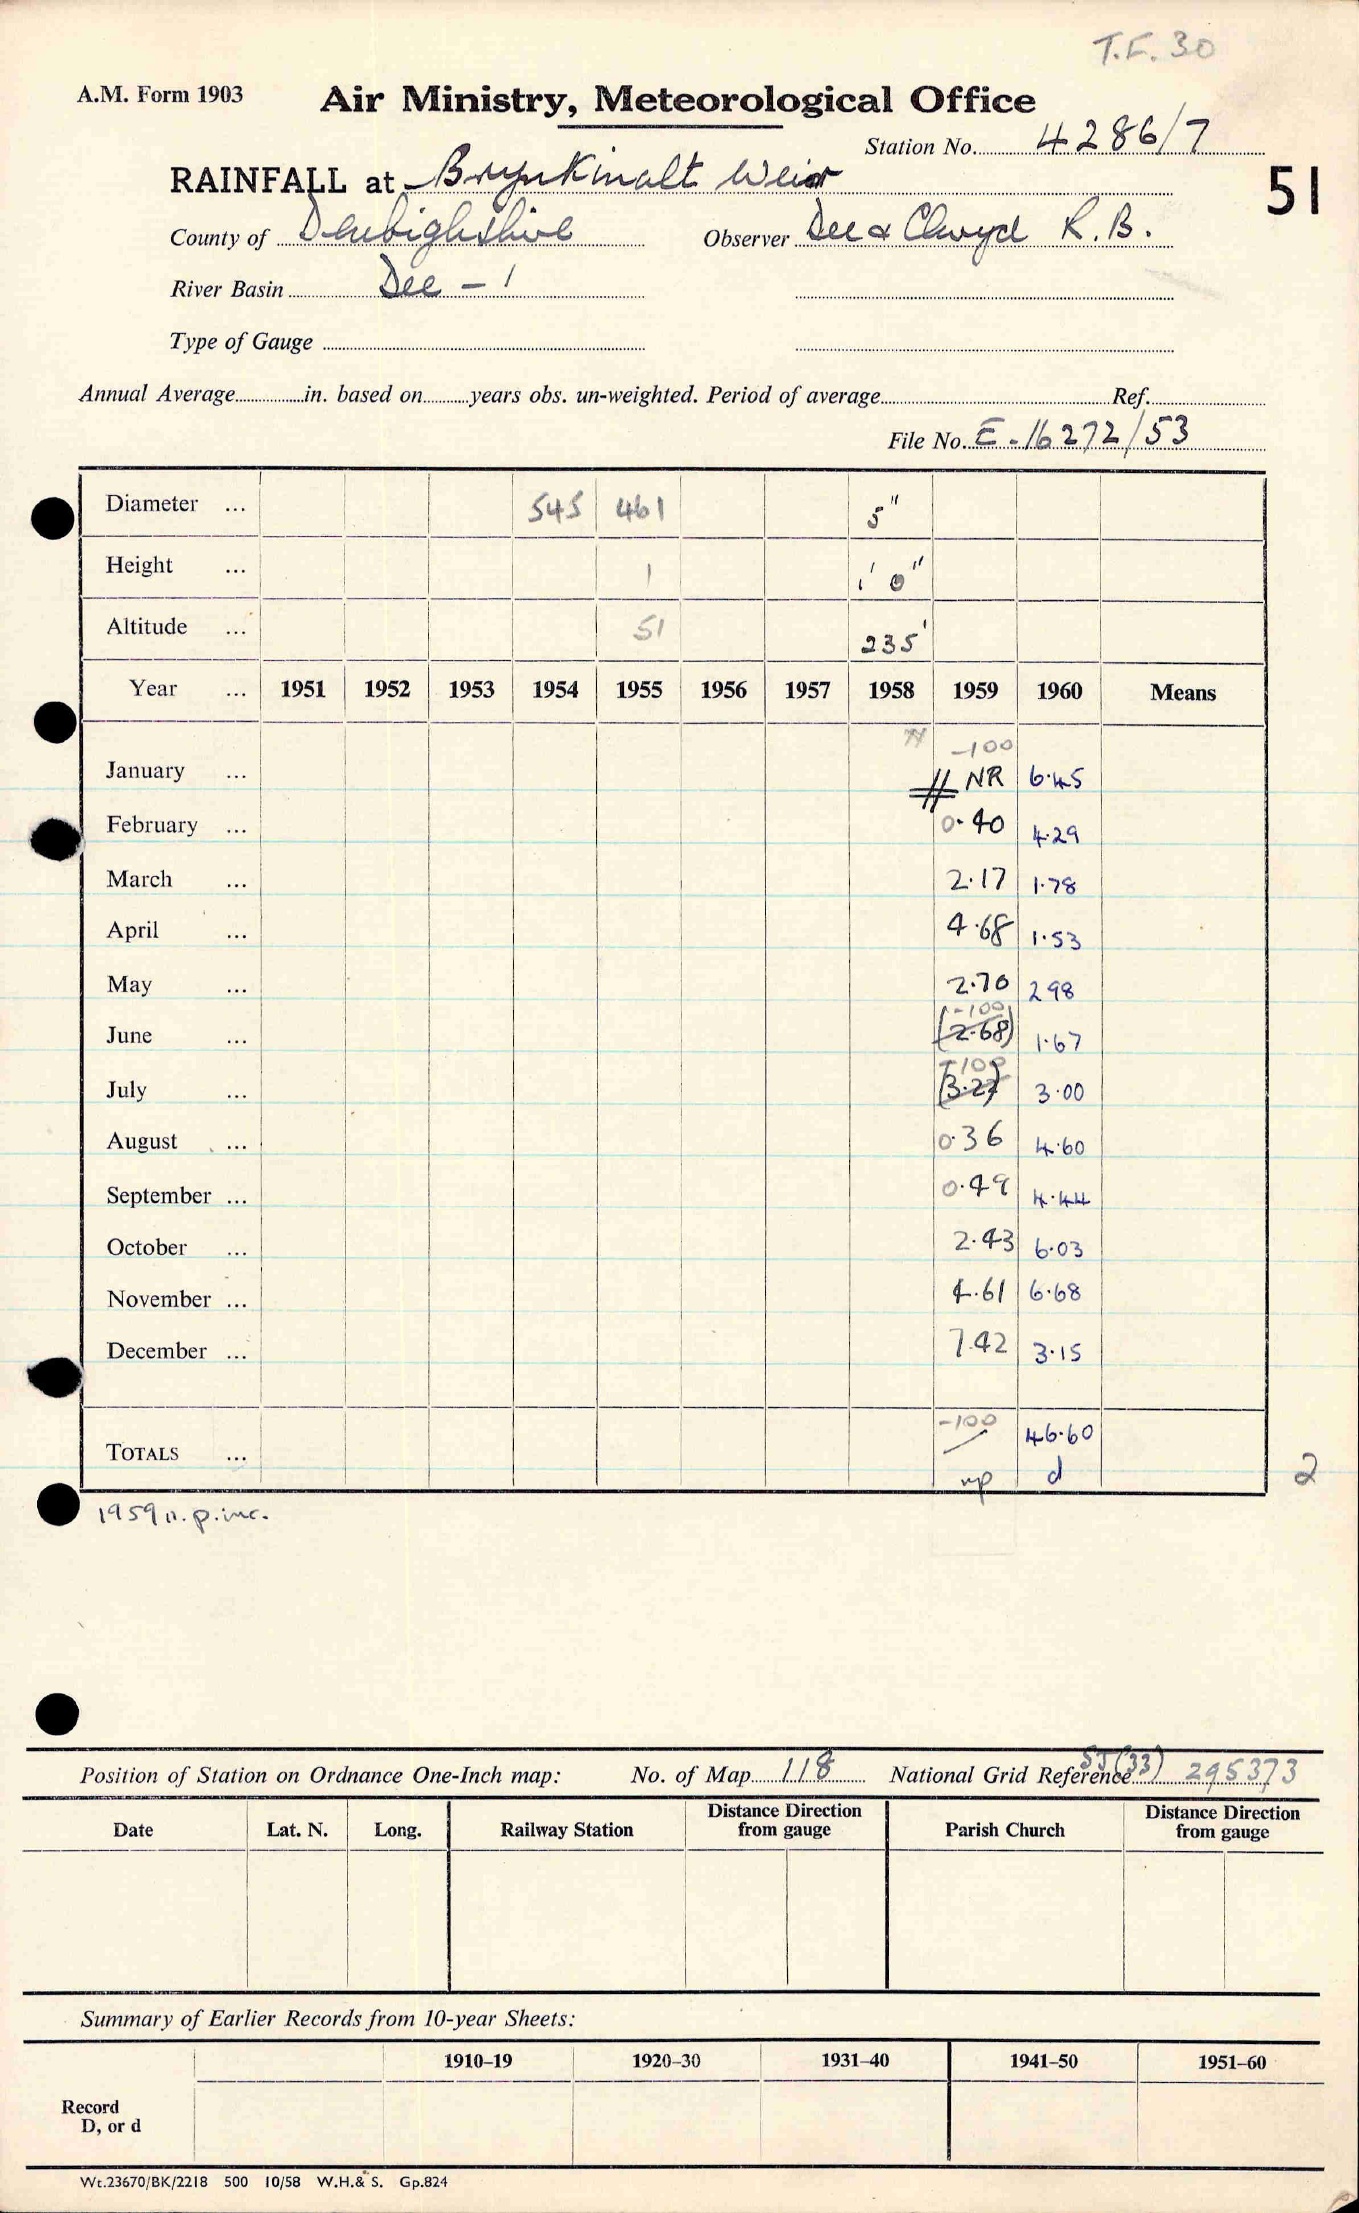 T.F. 30
A.M. Form 1903
Air Ministry, Meteorological Office
Station No. 4286/7
RAINFALL at Brynkinalt Weir
51
County of Denbighshire Observer Dee & Clwyd R.B.
River Basin Dee - 1
Type of Gauge
Annual Average in. based on years obs. un-weighted. Period of average Ref.
File No. E.16272/53
Diameter ... 545 461 5"
Height ... 1 1' 0"
Altitude ... 51 235'
Year ... 1951 1952 1953 1954 1955 1956 1957 1958 1959 1960 Means
-100
January ... NR 6.45
February ... 0.40 4.29
March ... 2.17 1.78
April ... 4.68 1.53
May ... 2.70 2 98
-100
June ... (2.68) 1.67
-100
July ... (3.27) 3.00
August ... 0.36 4.60
September ... 0.49 4.44
October ... 2.43 6.03
November ... 4.61 6.68
December ... 7.42 3.15
-100
TOTALS ... 46.60
np d 2
1959 n.p. inc.
Position of Station on Ordnance One-Inch map: No. of Map 118 National Grid Reference SJ(33) 295373
Date Lat. N. Long. Railway Station Distance Direction from gauge Parish Church Distance Direction from gauge
Summary of Earlier Records from 10-year Sheets:
1910–19 1920–30 1931–40 1941–50 1951–60
Record
D, or d
Wt.23670/BK/2218 500 10/58 W.H.& S. Gp.824